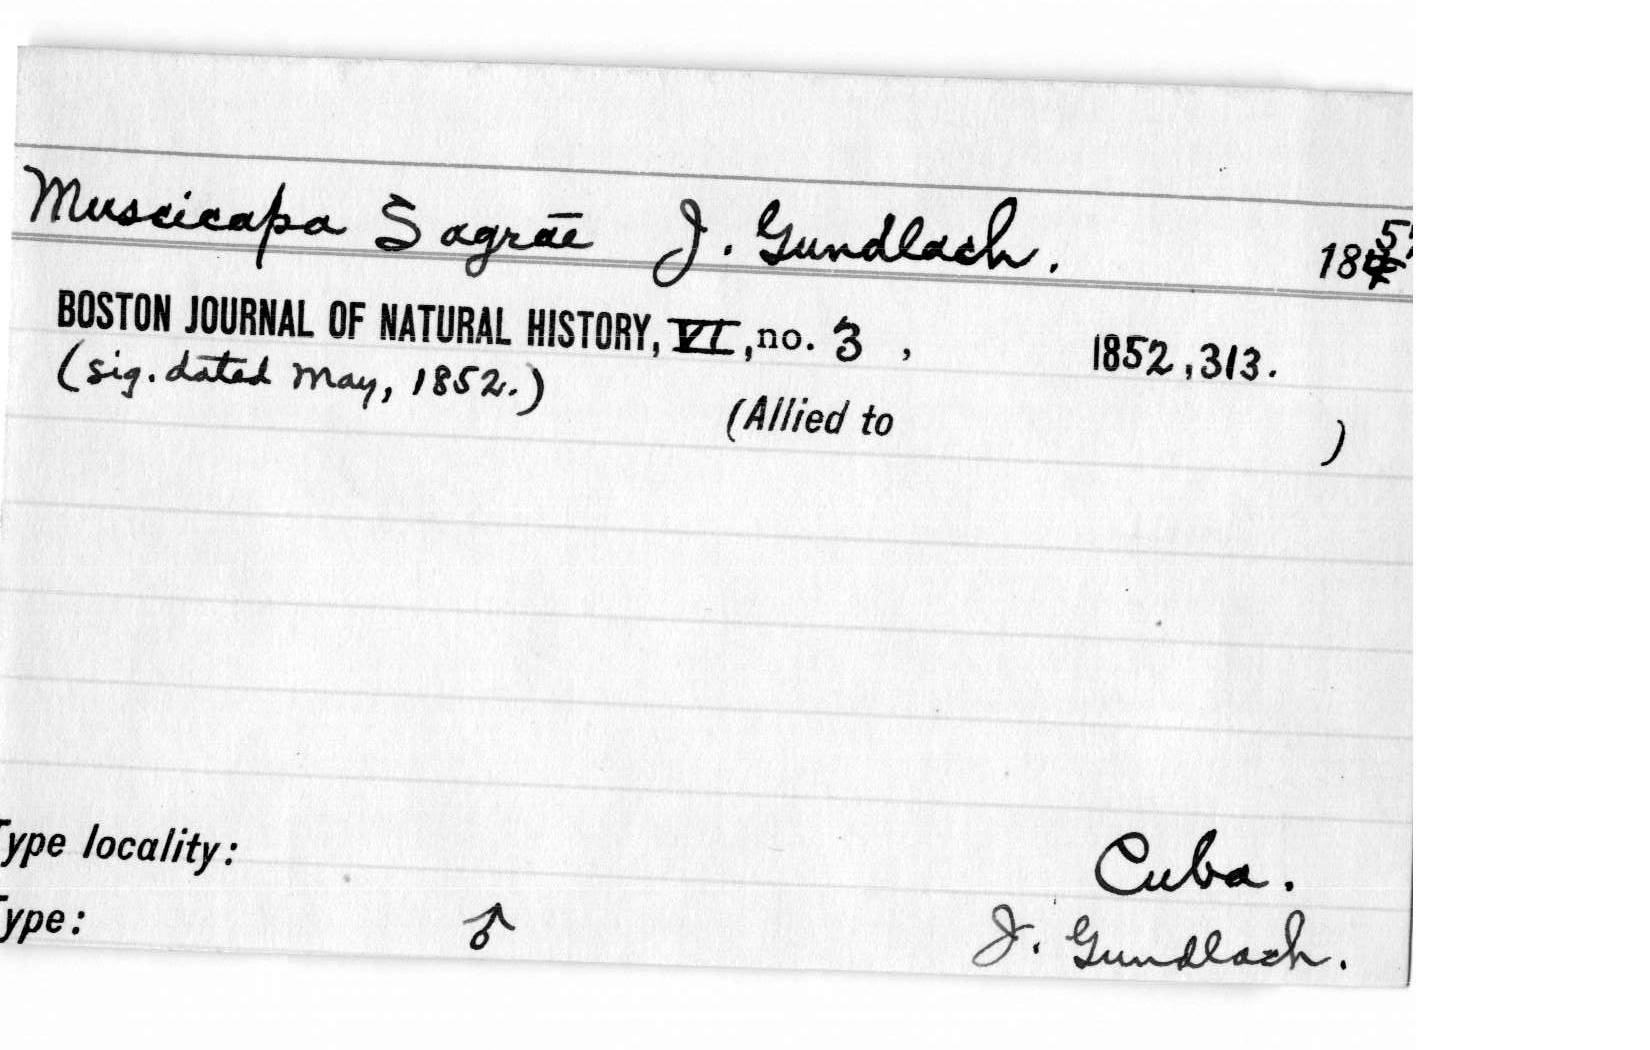 Muscicapa Sagrae J. Gundlach. 185
BOSTON JOURNAL OF NATURAL HISTORY, VI, no. 3, 1852, 313.
(sig. dated May, 1852.)
(Allied to )
Type locality: Cuba.
Type: ♂ J. Gundlach.